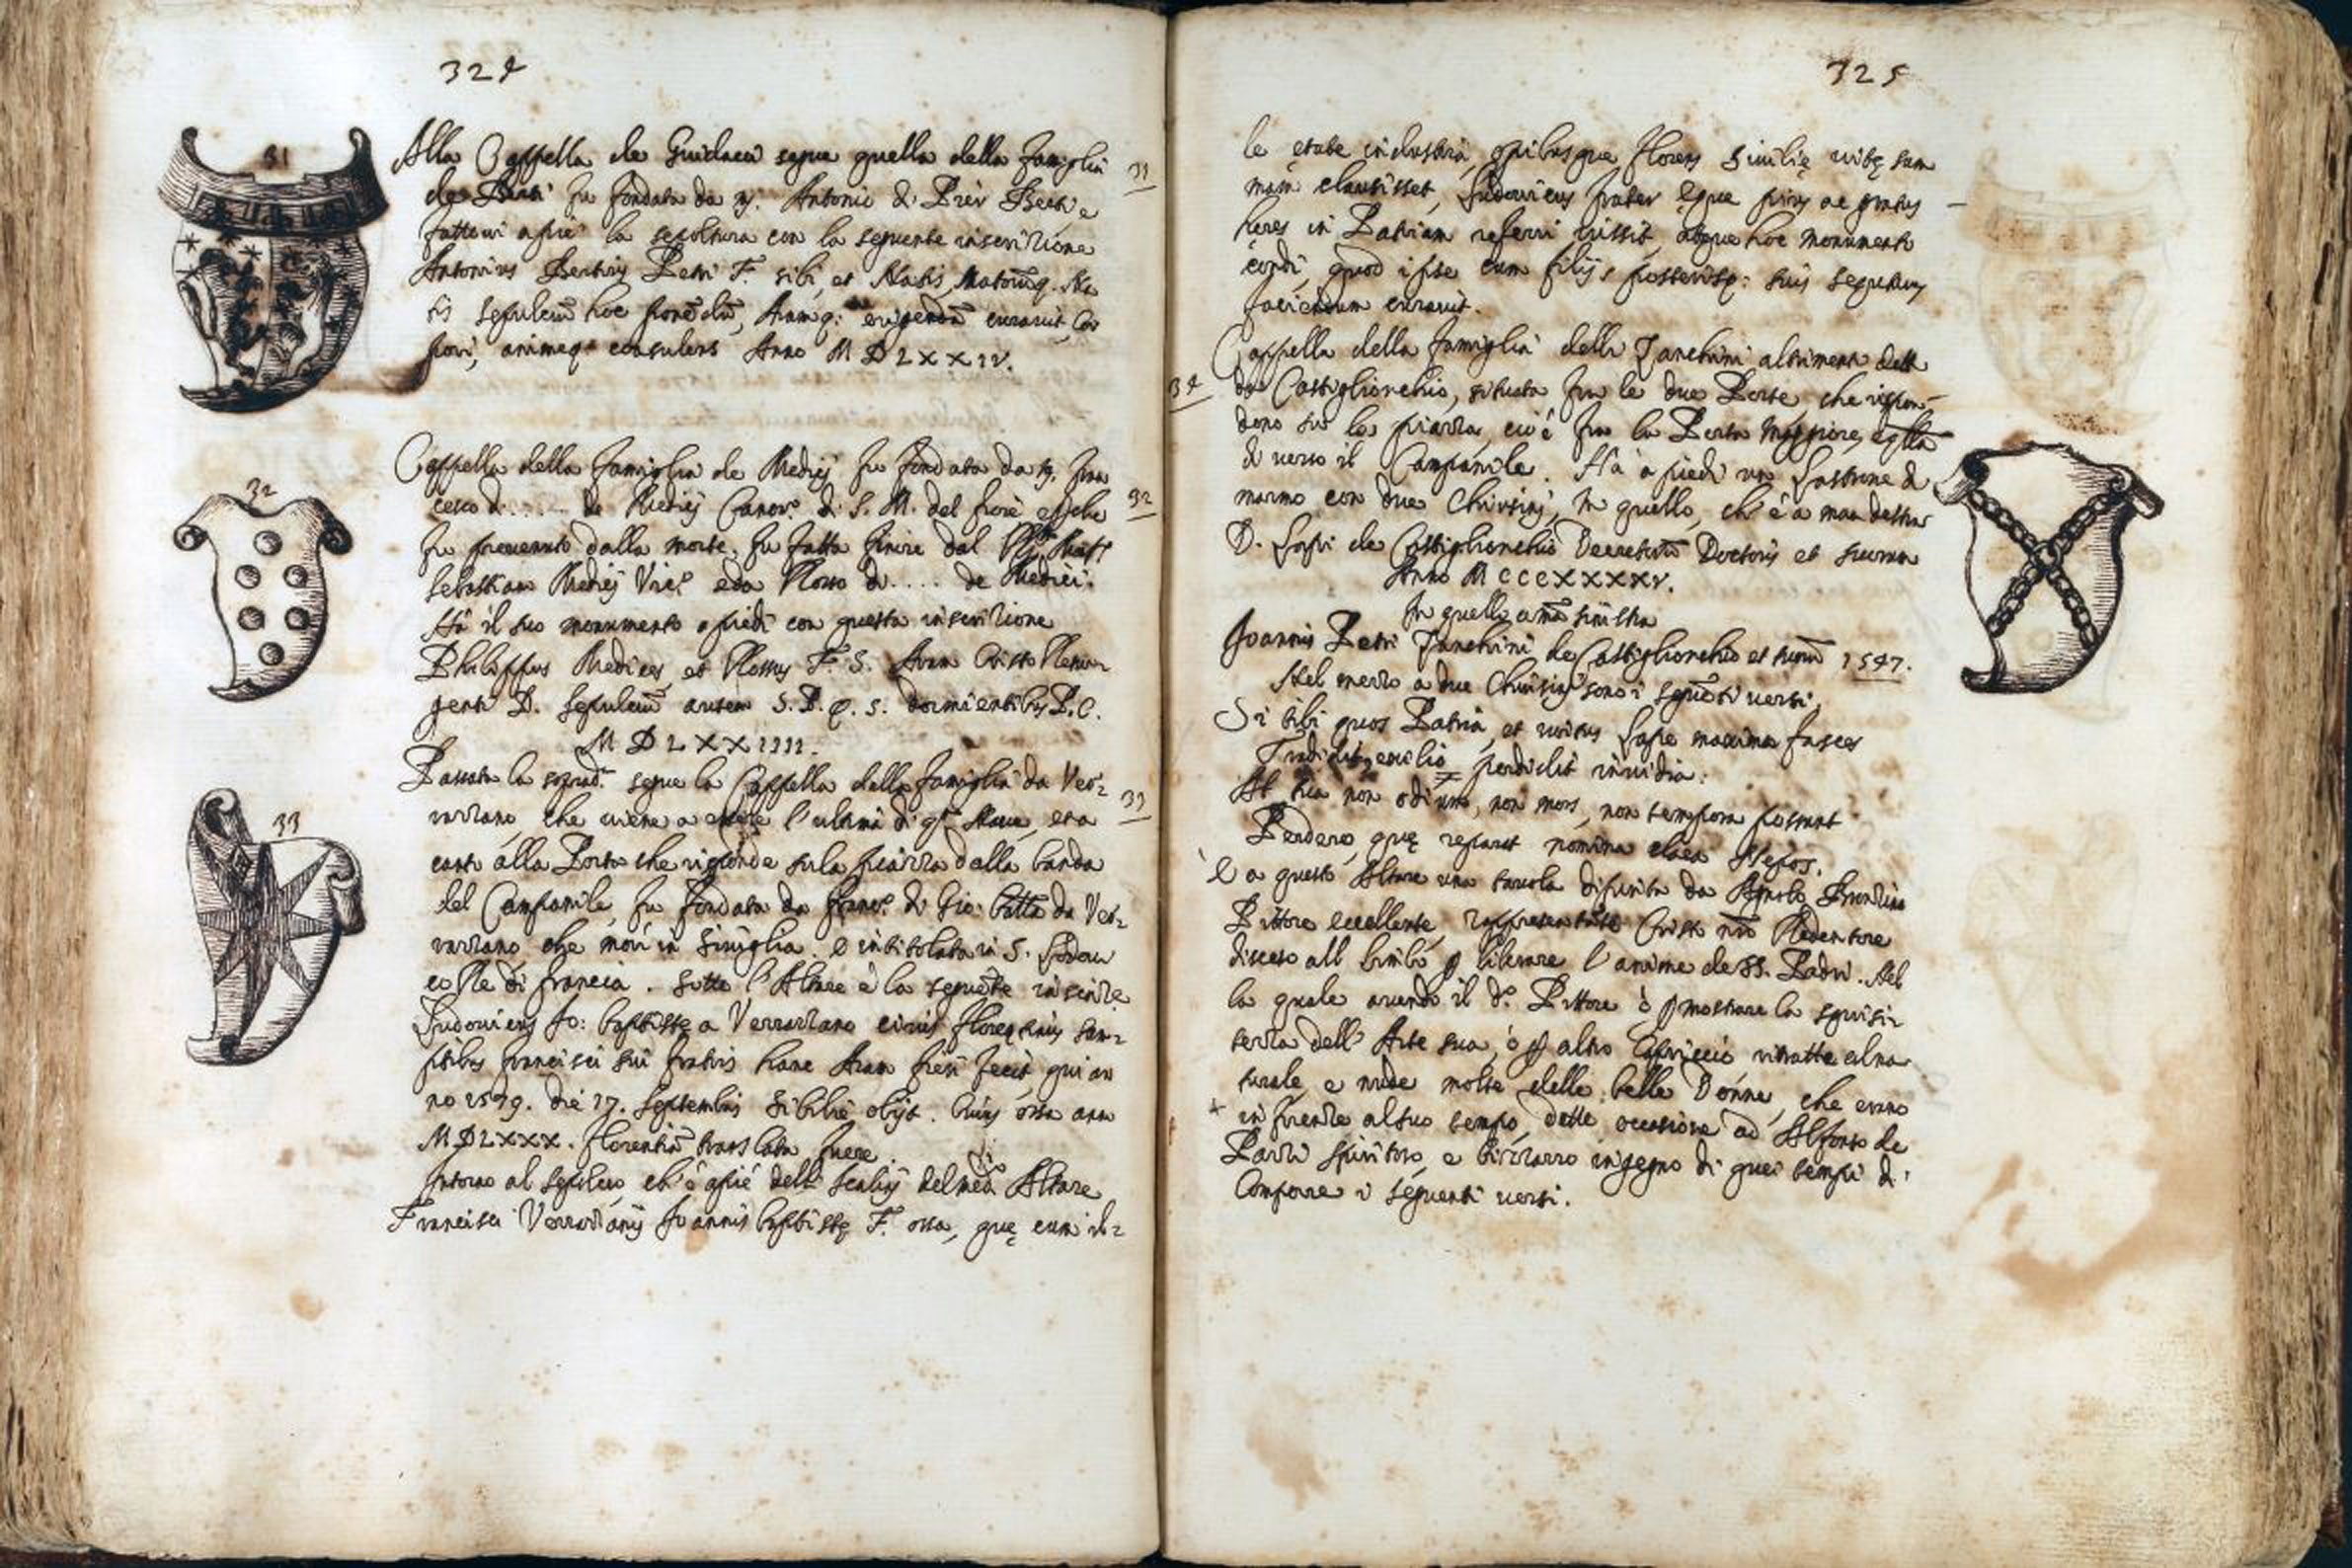 324
31
Alla Cappella de Guidacci segue quella della famiglia
de Berti fu fondata da m. Antonio di Pier Berti e
fattovi a piè la sepoltura con la seguente inscrizione
Antonius Bertius Petri F. sibi, et Natis,
tis sepulcrũ hoc ponẽdũ, Aramq: erigendã curavit, Cor
pori, animeq. consulens Anno M D L X X I V.
31
32
Cappella della famiglia de Medicij fu fondata da m. Fran
cesco d. .... de Medicij Canoṛ. di S. M. del fiore e
fu prevenuto dalla morte, fu fatta finire dal
Sebastian Medicij e da di .... de Medici.
Hà il suo monumento a piedi con questa inscrizione
Philippus Medices, et F. S. Aram Cristo
genti D. Sepulcrũ autem S. P. Q. S. dormientibus P. C.
M D L X X I I I I.
32
33
Passata la soprad.ª segue la Cappella della famiglia da Ver-
razzano, che viene a essere l'ultima di qª Nave, et a
canto alla Porta che risponde sula piazza dalla banda
del Campanile, fu fondata da Francº di Gio: batta da Ver-
razzano che morì in Siviglia. e intitolata in S. Lodovi
co Re di francia. Sotto l'Altare è la seguẽte inscriz.e
Ludovicus Jo: baptistę a Verrazzano civis florentinus sum-
ptibus francisci sui fratris hanc Aram fieri fecit, qui an
no 1579. die 17. Septembris Sibilię obijt. Cuius ossa anno
M D L X X X. florentiã translata fuere.
Intorno al sepulcro ch'è a piè delli scalij del med.º Altare
Francisci Verrazzanij Joannis baptistę F. ossa, quę cum il-
33
325
le etate industria, opibusque florens Sivilię vitę sum
mam clausisset, Ludovicus frater eque pius ac gratus
heres in Patriam referri iussit, atque hoc monumento
condi, quod ipse cum filijs posterisq: suis
faciendum curavit.
34
Cappella della famiglia delli Zanchini altrimenti detti
da Castiglionchio, situata fra le due Porte, che rispon-
dono su la piazza, cio è fra la Porta Maggiore, e qlla
di verso il Campanile. Hà a piedi un lastrone di
marmo con due Chiusini, In quello, ch'è a man destra
D. Lapi de Castiglionchio Decretorũ Doctoris et suorum
Anno M C C C X X X X V.
In quello a mã sinistra
Joannis Petri Zanchini de Castiglionchio et suorũ 1547.
Nel mezzo a due Chiusini sono i seguẽti versi,
Si tibi quos Patria, et virtus Lape maxima fasces
Tradidit, exilio perdidit invidia:
At tua non odium, non mors, non tempora possunt
Perdere, quę reparat nomina clara Nepos.
È a questo Altare una tavola dipinta da Agnolo Bronzino
Pittore eccellente, rappresentãte Cristo nrõ Redentore
disceso all limbo p liberare l'anime de SS. Padri. Nel
la quale avendo il d.º Pittore ò p mostrare la squisi-
tezza dell'Arte sua, ò p altro Capriccio ritratte al na
turale, e nude molte delle belle Donne, che erano
in Firenze al suo tempo, dette occasione ad Alfonso de
Pazzi spiritoso, e bizzarro ingegno di quei tempi di
Comporre i seguenti versi.